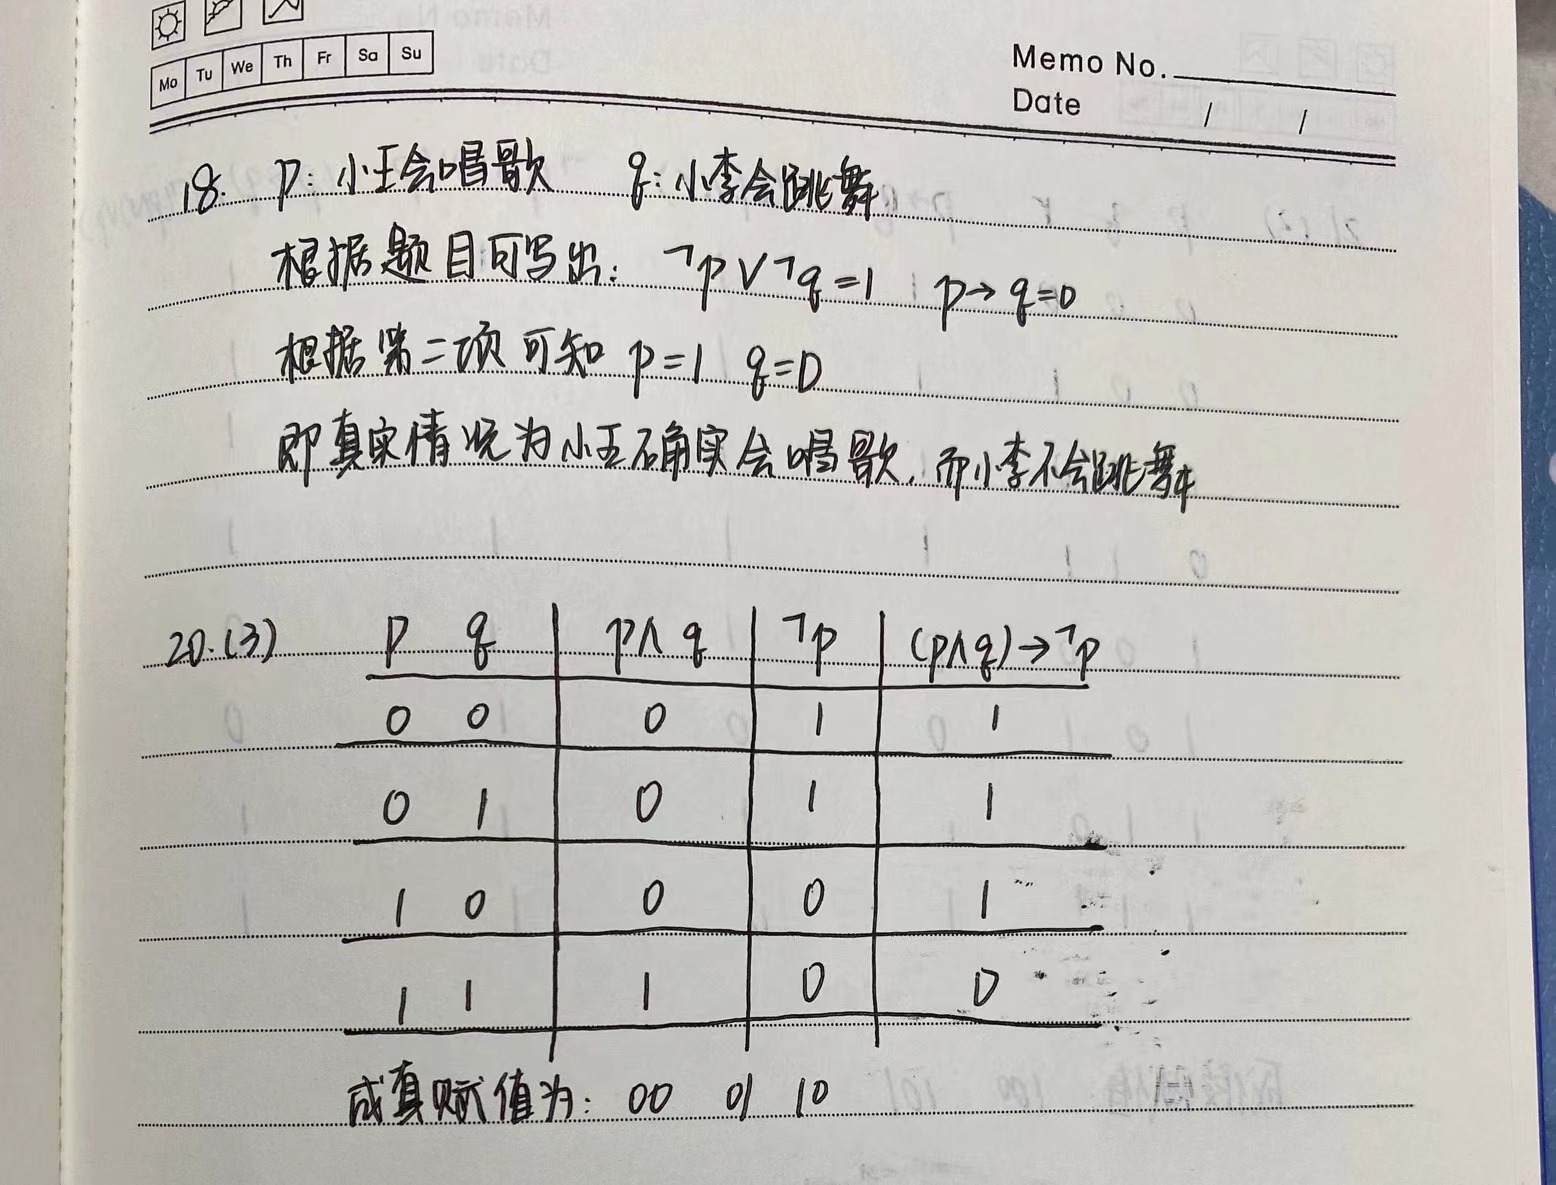 Mo Tu We Th Fr Sa Su
Memo No.
Date / /
18. p: 小王会唱歌 q: 小李会跳舞
根据题目可写出: ¬p∨¬q=1 p→q=0
根据第二项可知 p=1 q=0
即真实情况为小王确实会唱歌,而小李不会跳舞
20.(3) p q p∧q ¬p (p∧q)→¬p
0 0 0 1 1
0 1 0 1 1
1 0 0 0 1
1 1 1 0 0
成真赋值为: 00 01 10